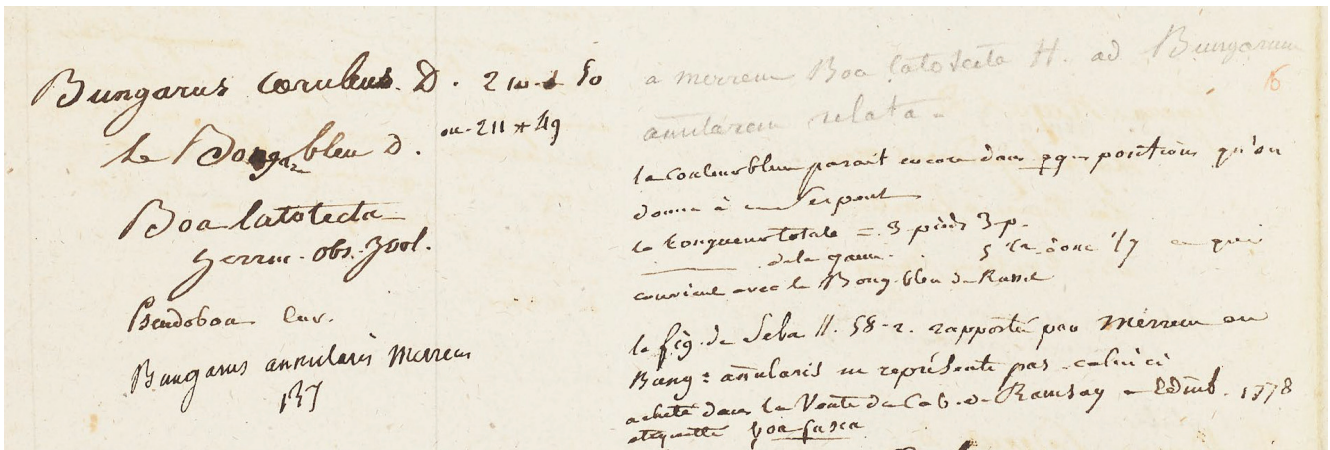 Bungarus cœruleus D. 210 + 50
ou 211 + 49
le Bongar bleu D.
Boa latotecta
obs. Zool.
Pseudoboa Cuv.
Bungarus annularis Merrem
137
a merrem Boa latotecta H. ad Bungarum
annularem relata
16
la couleur bleu parait encore dans positions qu'on
donne à Serpent
la longueur totale = 3 pieds 3 p.
de la queue 5 donc 1/7 en quoi
convient avec le Bong. bleu de Russel
la fig. de Seba II. 58-2. rapporté par Merrem au
Bung: annularis ne représente pas celui ci
acheté dans la Vente du Cab. de Ramsay a Edinb. 1778
etiquetté boa fasca